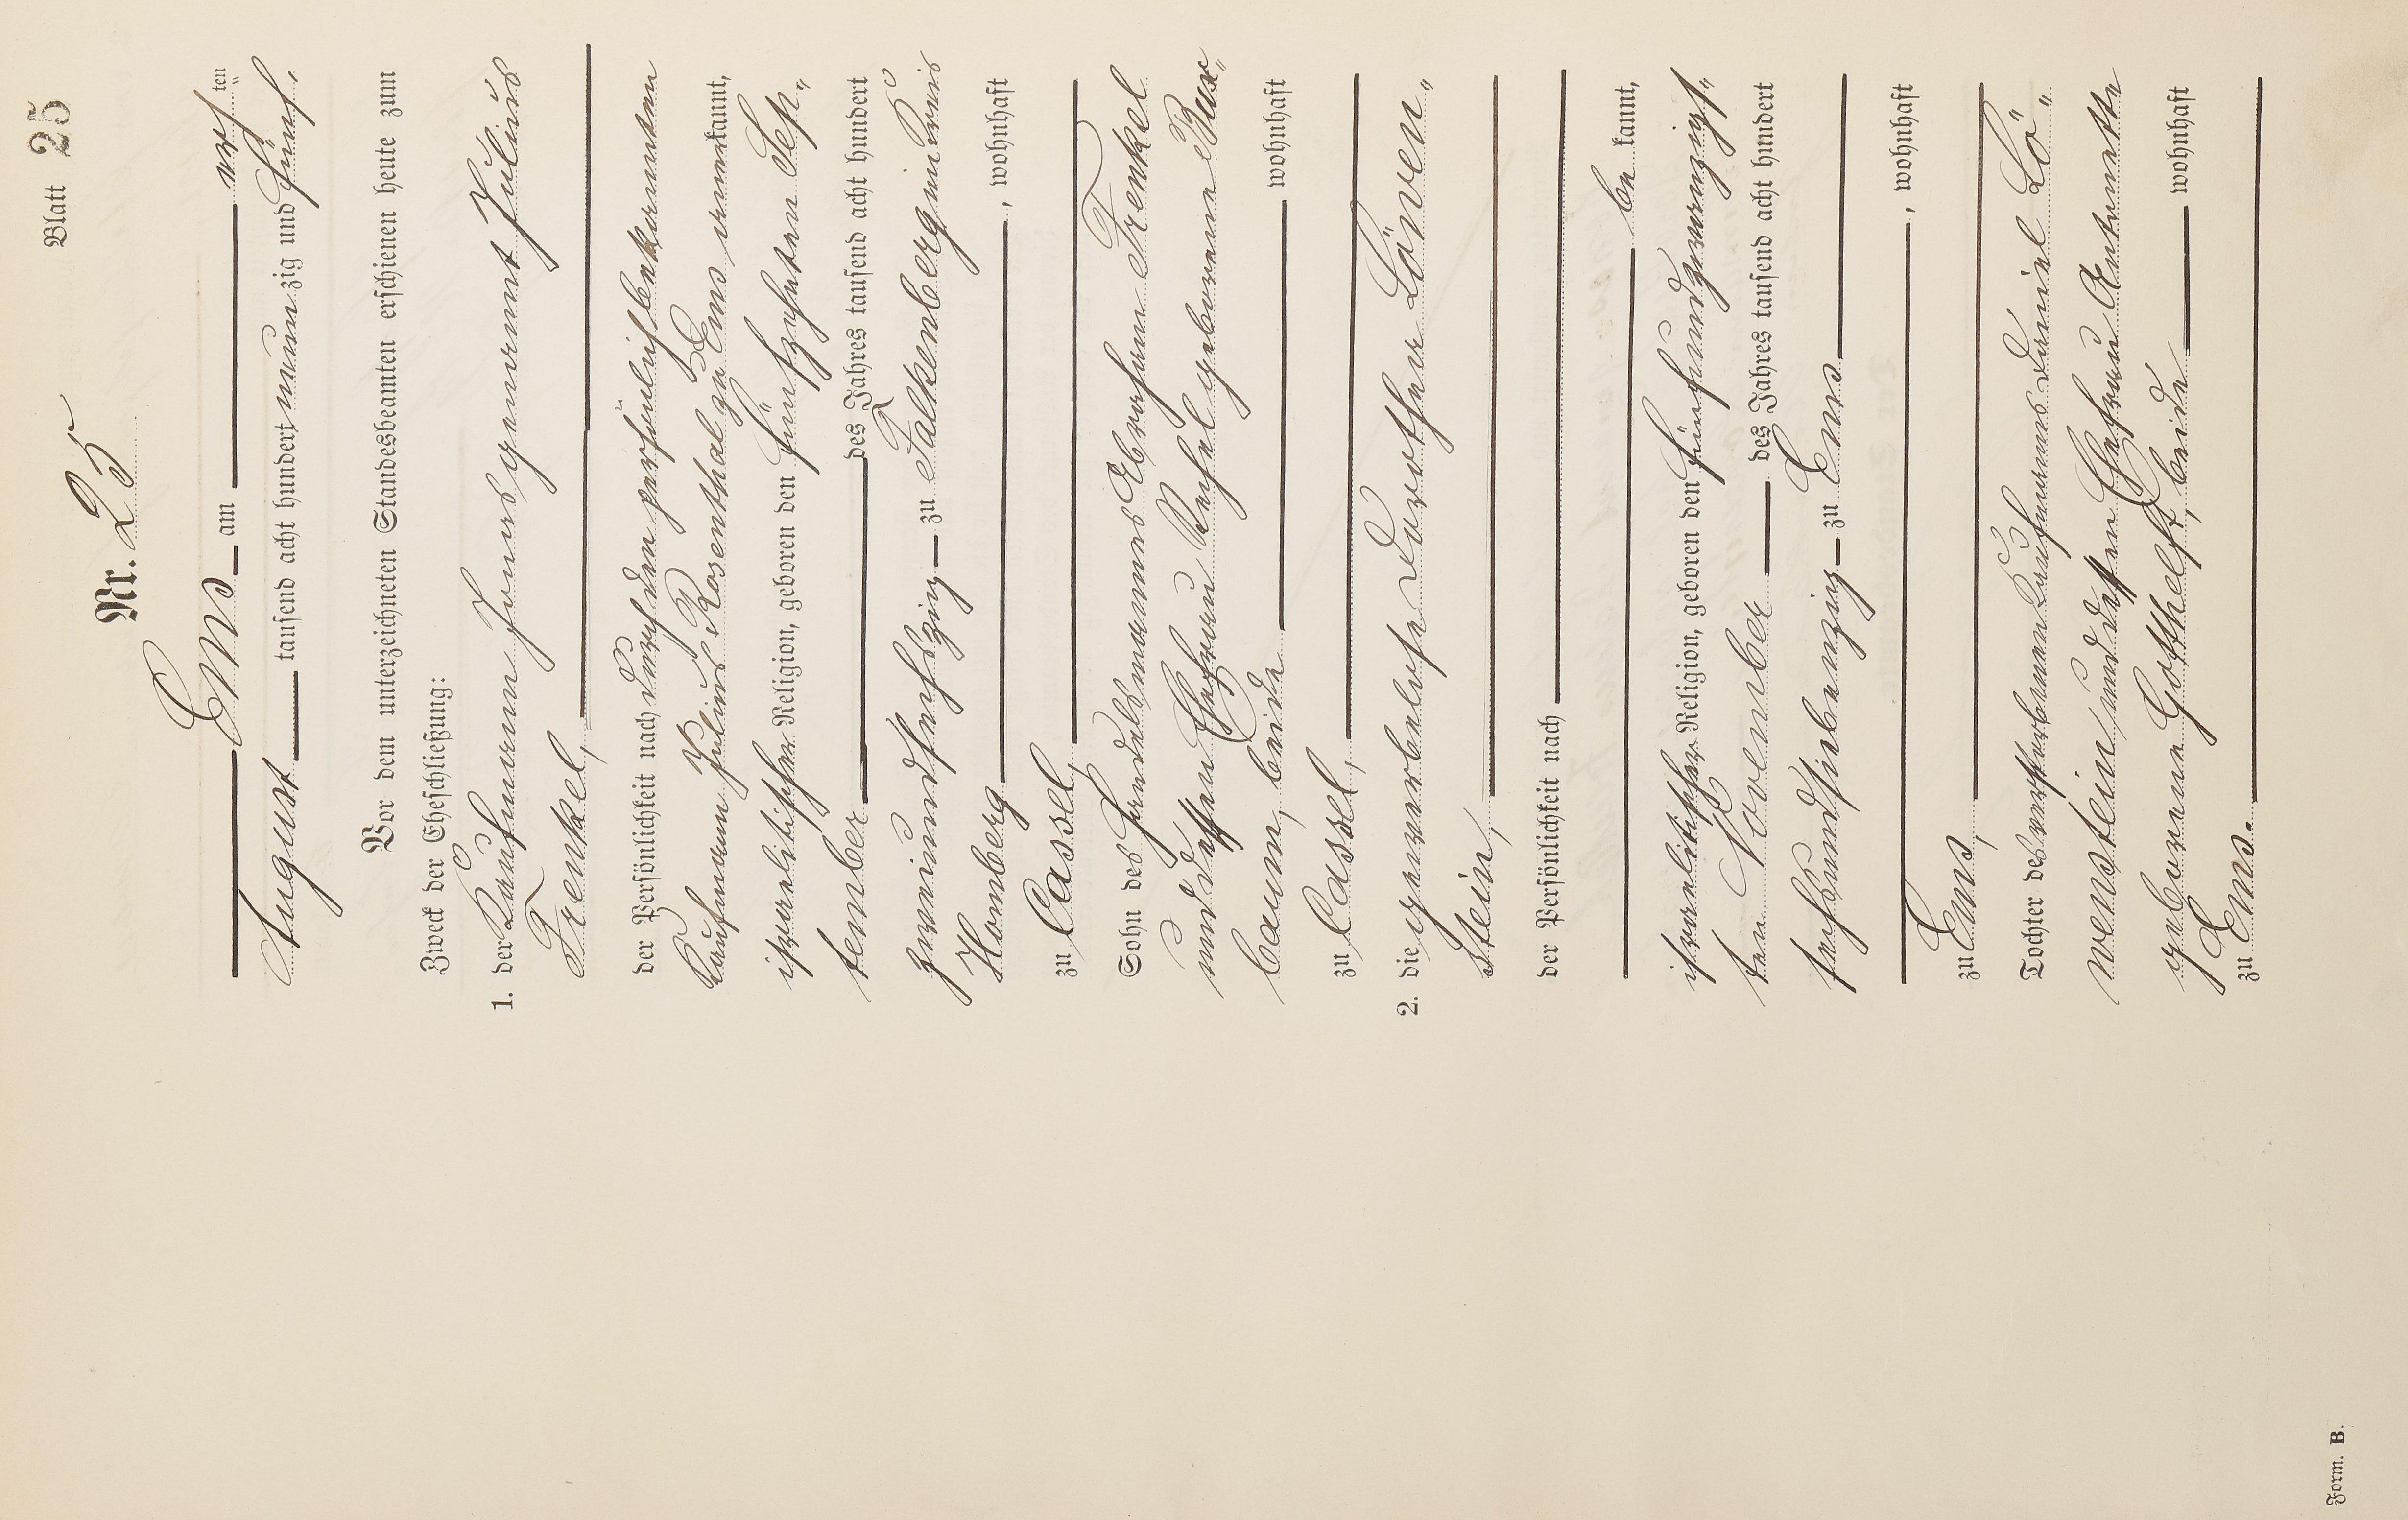 Blatt 25
Nr. 25
Ems am erſ ten
August tauſend acht hundert neun zig und fünf.
Vor dem unterzeichneten Standesbeamten erſchienen heute zum
Zweck der Eheſchließung:
1. der Kaufmann Hans genannt Julius
Frenkel,
der Perſönlichkeit nach durch den perſönlich bekannten
Kaufmann Julius Rosenthal zu Ems anerkannt,
iſraelitiſcher Religion, geboren den fünfzehnten Sep„
tember des Jahres tauſend acht hundert
zweiundſechszig zu Falkenberg im Kreis
Homberg, wohnhaft
zu Cassel,
Sohn des Handelsmannes Abraham Frenkel
und deſſen Ehefrau Rachel geborene Bux„
baum, beide wohnhaft
zu Cassel,
2. die gewerbeloſe Dorothea Löwen„
stein,
der Perſönlichkeit nach
be kannt,
iſraelitiſcher Religion, geboren den fünfundzwanzigſ„
ten November des Jahres tauſend acht hundert
ſechsundſiebenzig zu Ems
, wohnhaft
zu Ems,
Tochter des verſtorbenen Kaufmanns Daniel Lö„
wenstein und deſſen Ehefrau
geborene Gotthelft, beide wohnhaft
zu Ems.
Form. B.